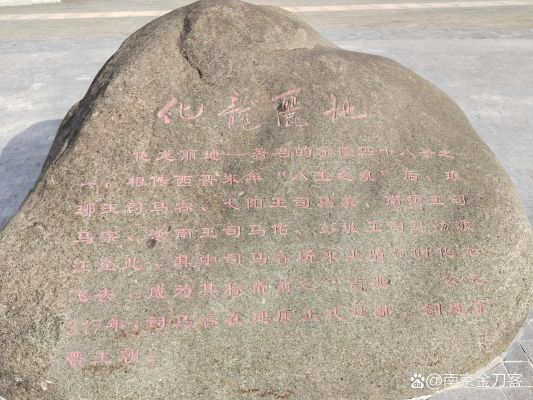 化龍麗地
化龙丽地——著名的金陵四十八景之
一。相传西晋末年“八王之乱”后，琅
琊王司马睿、弋阳王司马羕、南顿王司
马宗、汝南王司马佑、彭城王司马纮渡
江至此，其中司马睿所乘坐骑
飞去，成为其称帝前之 公元
317年，司马睿在建康正式 创建东
晋王朝
南京金刀客